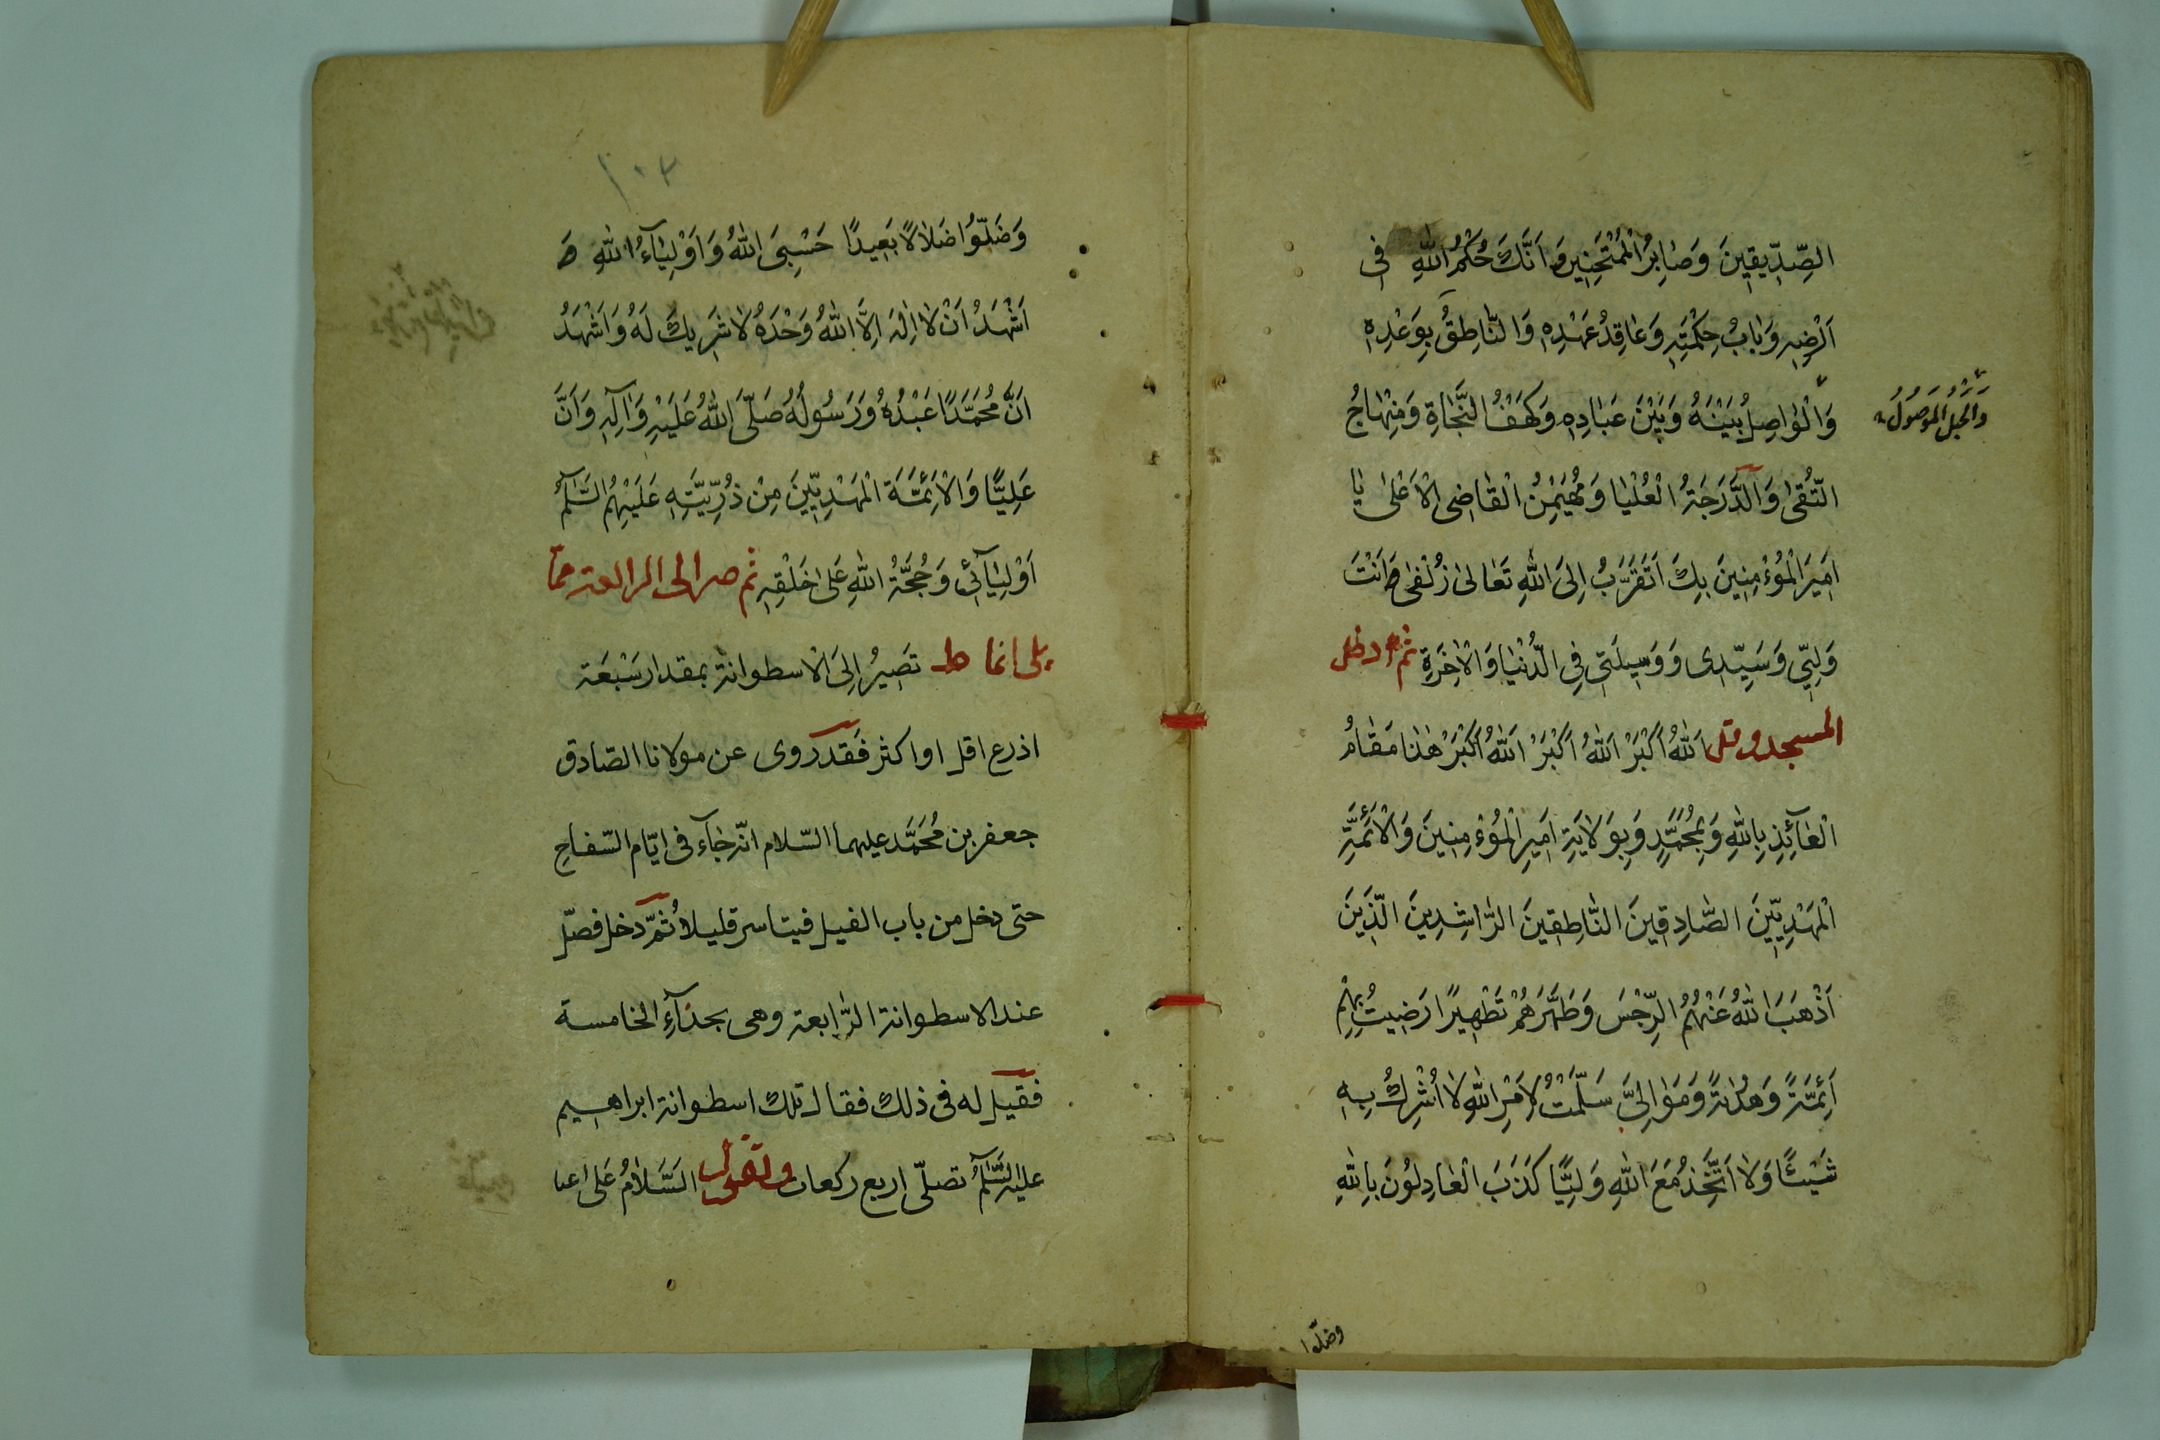 الصِّدِّيقِينَ وَصَابِرُ الْمُمْتَحَنِينَ وَاَنَّكَ حُكْمُ اللهِ فِى
اَرْضِهِ وَبَابُ حِكْمَتِهِ وَعَاقِدُ عَهْدِهِ وَالنَّاطِقُ بِوَعْدِهِ
وَالْحَبْلُ الْمَوْصُولُ
وَالْوَاصِلُ بَيْنَهُ وَبَيْنَ عِبَادِهِ وَكَهْفُ النَّجَاةِ وَمِنْهَاجُ
التُّقَى وَالدَّرَجَةُ الْعُلْيَا وَمُهَيْمِنُ الْقَاضِى الْاَعْلَى يَا
اَمِيرَ الْمُؤْمِنِينَ بِكَ اَتَقَرَّبُ اِلَى اللهِ تَعَالَى زُلْفَى اَنْتَ
وَلِيِّى وَسَيِّدِى وَوَسِيلَتِى فِى الدُّنْيَا وَالْاٰخِرَةِ ثم ادخل
المسجد وقل اَللهُ اَكْبَرُ اَللهُ اَكْبَرُ اَللهُ اَكْبَرُ هٰذَا مَقَامُ
الْعَآئِذِ بِاللهِ وَبِمُحَمَّدٍ وَبِوَلَايَةِ اَمِيرِ الْمُؤْمِنِينَ وَالْاَئِمَّةِ
الْمَهْدِيِّينَ الصَّادِقِينَ النَّاطِقِينَ الرَّاشِدِينَ الَّذِينَ
اَذْهَبَ اللهُ عَنْهُمُ الرِّجْسَ وَطَهَّرَهُمْ تَطْهِيرًا رَضِيتُ بِهِمْ
اَئِمَّةً وَهُدَاةً وَمَوَالِيَّ سَلَّمْتُ لِاَمْرِ اللهِ لَا اُشْرِكُ بِهِ
شَيْئًا وَلَا اَتَّخِذُ مَعَ اللهِ وَلِيًّا كَذَبَ الْعَادِلُونَ بِاللهِ
وضلّوا
١٠٣
وَضَلُّوا ضَلَالًا بَعِيدًا حَسْبِىَ اللهُ وَاَوْلِيَآءُ اللهِ
اَشْهَدُ اَنْ لَا اِلٰهَ اِلَّا اللهُ وَحْدَهُ لَا شَرِيكَ لَهُ وَاَشْهَدُ
اَنَّ مُحَمَّدًا عَبْدُهُ وَرَسُولُهُ صَلَّى اللهُ عَلَيْهِ وَاٰلِهِ وَاَنَّ
عَلِيًّا وَالْاَئِمَّةَ الْمَهْدِيِّينَ مِنْ ذُرِّيَّتِهِ عَلَيْهِمُ السَّلٰمُ
اَوْلِيَآئِى وَحُجَّةُ اللهِ عَلَى خَلْقِهِ ثم صر الى الرابعة مما
يلى انماط تَصِيرُ اِلَى الْاسطوانة بمقدار سَبْعَة
اذرع اقل او اكثر فَقَد روى عن مولانا الصّادق
جعفر بن مُحَمَّد عليهما السّلام انّه جَآء فى ايّام السّفاح
حتى دخل من باب الفيل فيتاسر قليلاً ثُمَّ دخل فصلّى
عند الاسطوانة الرّابعة وهى بحذآءِ الخامسة
فقيل له فى ذلك فقال تلك اسطوانة ابراهيم
عليه السَّلٰمُ تصلّى اربع ركعات وتقول السَّلَامُ عَلى